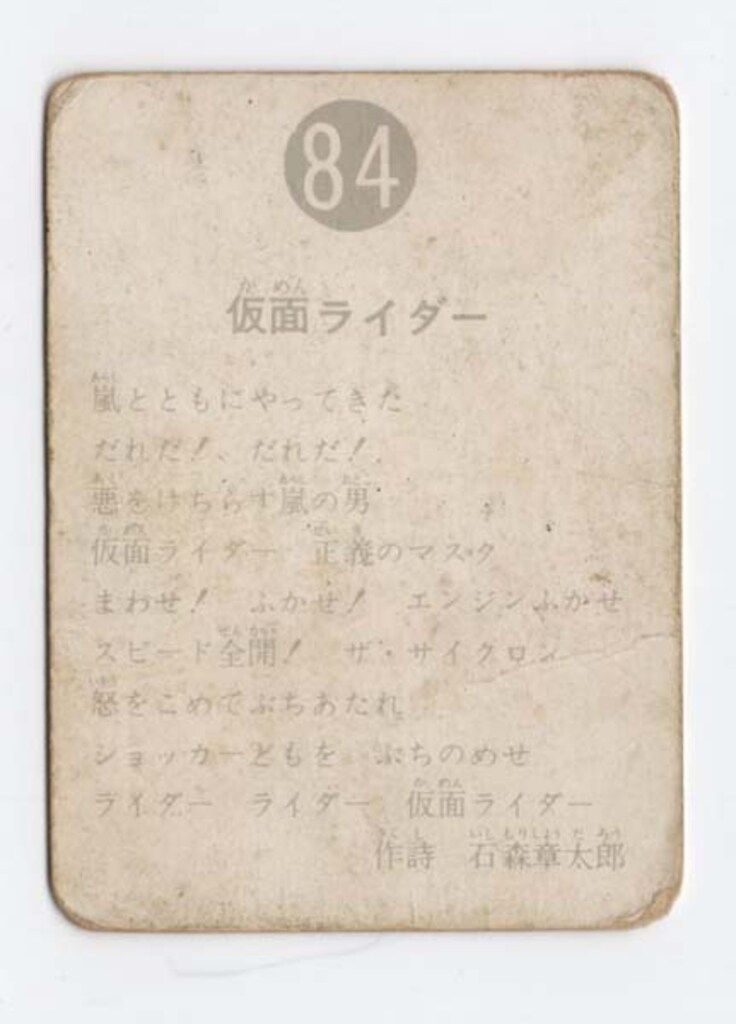 84
仮面ライダー
嵐とともにやってきた
だれだ!、だれだ!
悪をけちらす嵐の男
仮面ライダー 正義のマスク
まわせ! ふかせ! エンジンふかせ
スピード全開! ザ・サイクロン
怒をこめてぶちあたれ
ショッカーどもを ぶちのめせ
ライダー ライダー 仮面ライダー
作詩 石森章太郎